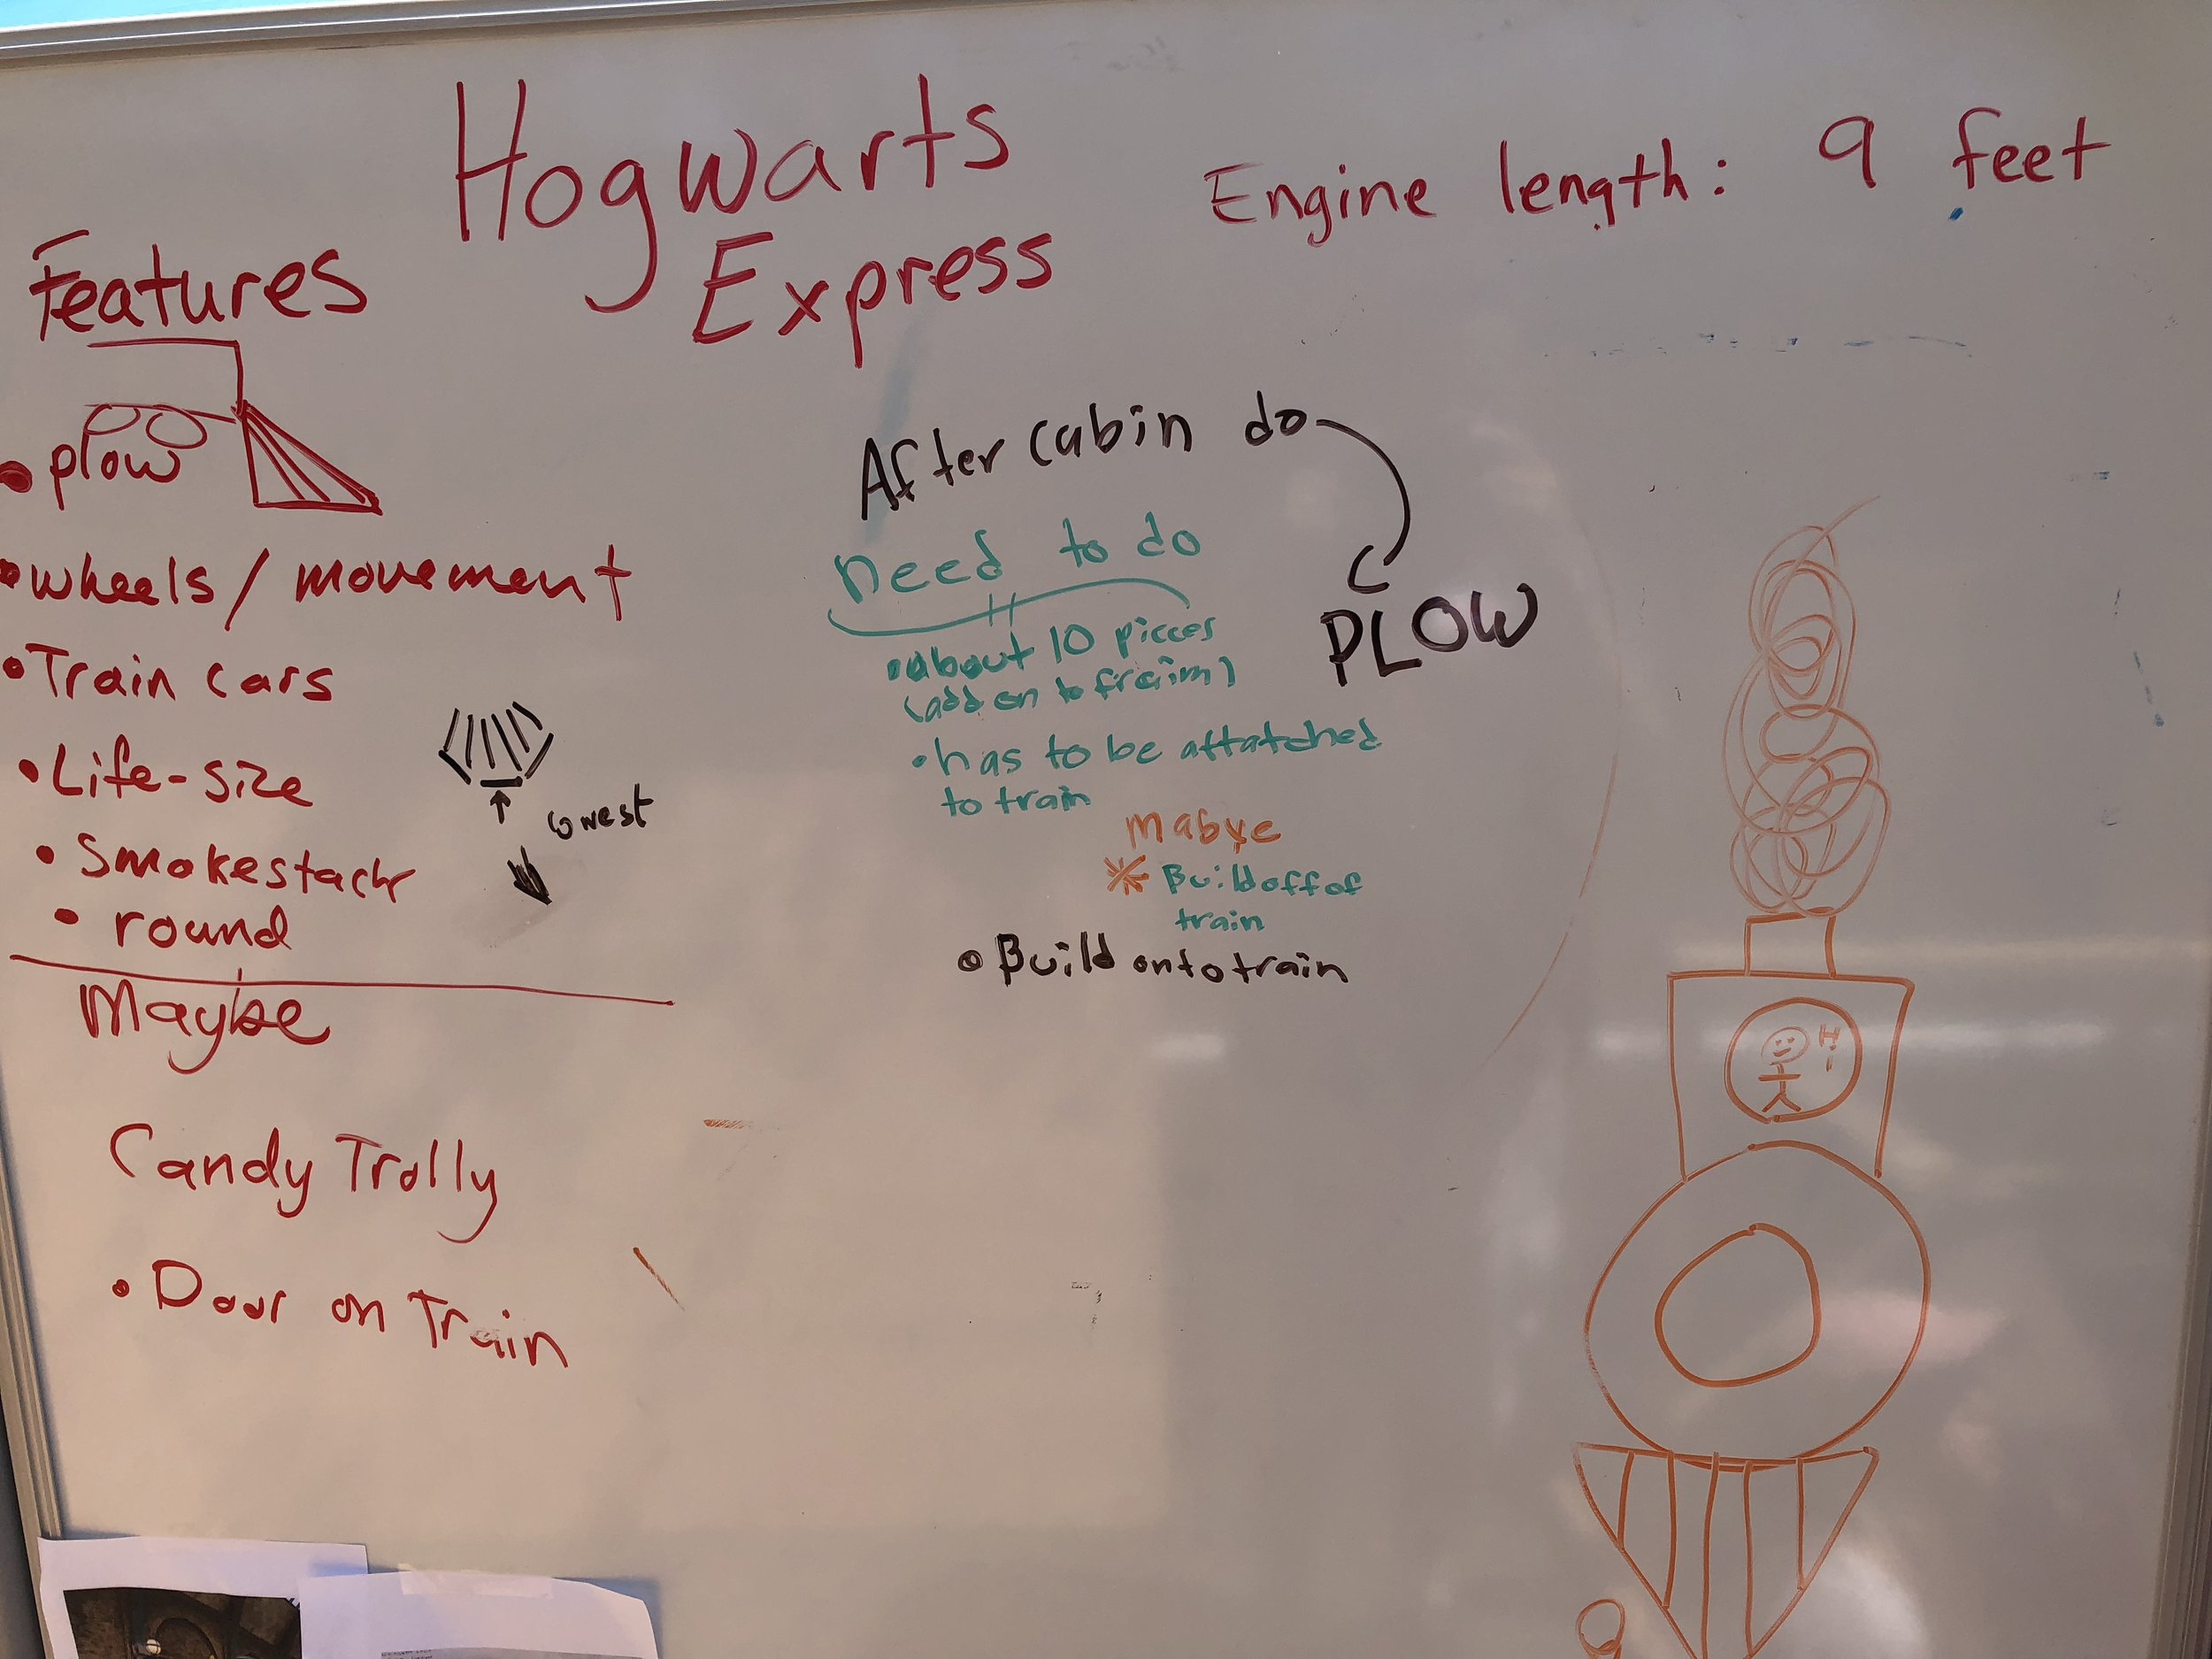 Hogwarts
Express
Engine length: 9 feet
Features
• plow
• wheels / movement
• Train cars
• Life-size
• Smokestack
• round
Maybe
Candy Trolly
• Door on Train
lowest
After cabin do
PLOW
need to do
• about 10 pieces
(add on to fraim)
• has to be attatched
to train
mabye
* Build off of
train
• Build onto train
Hi